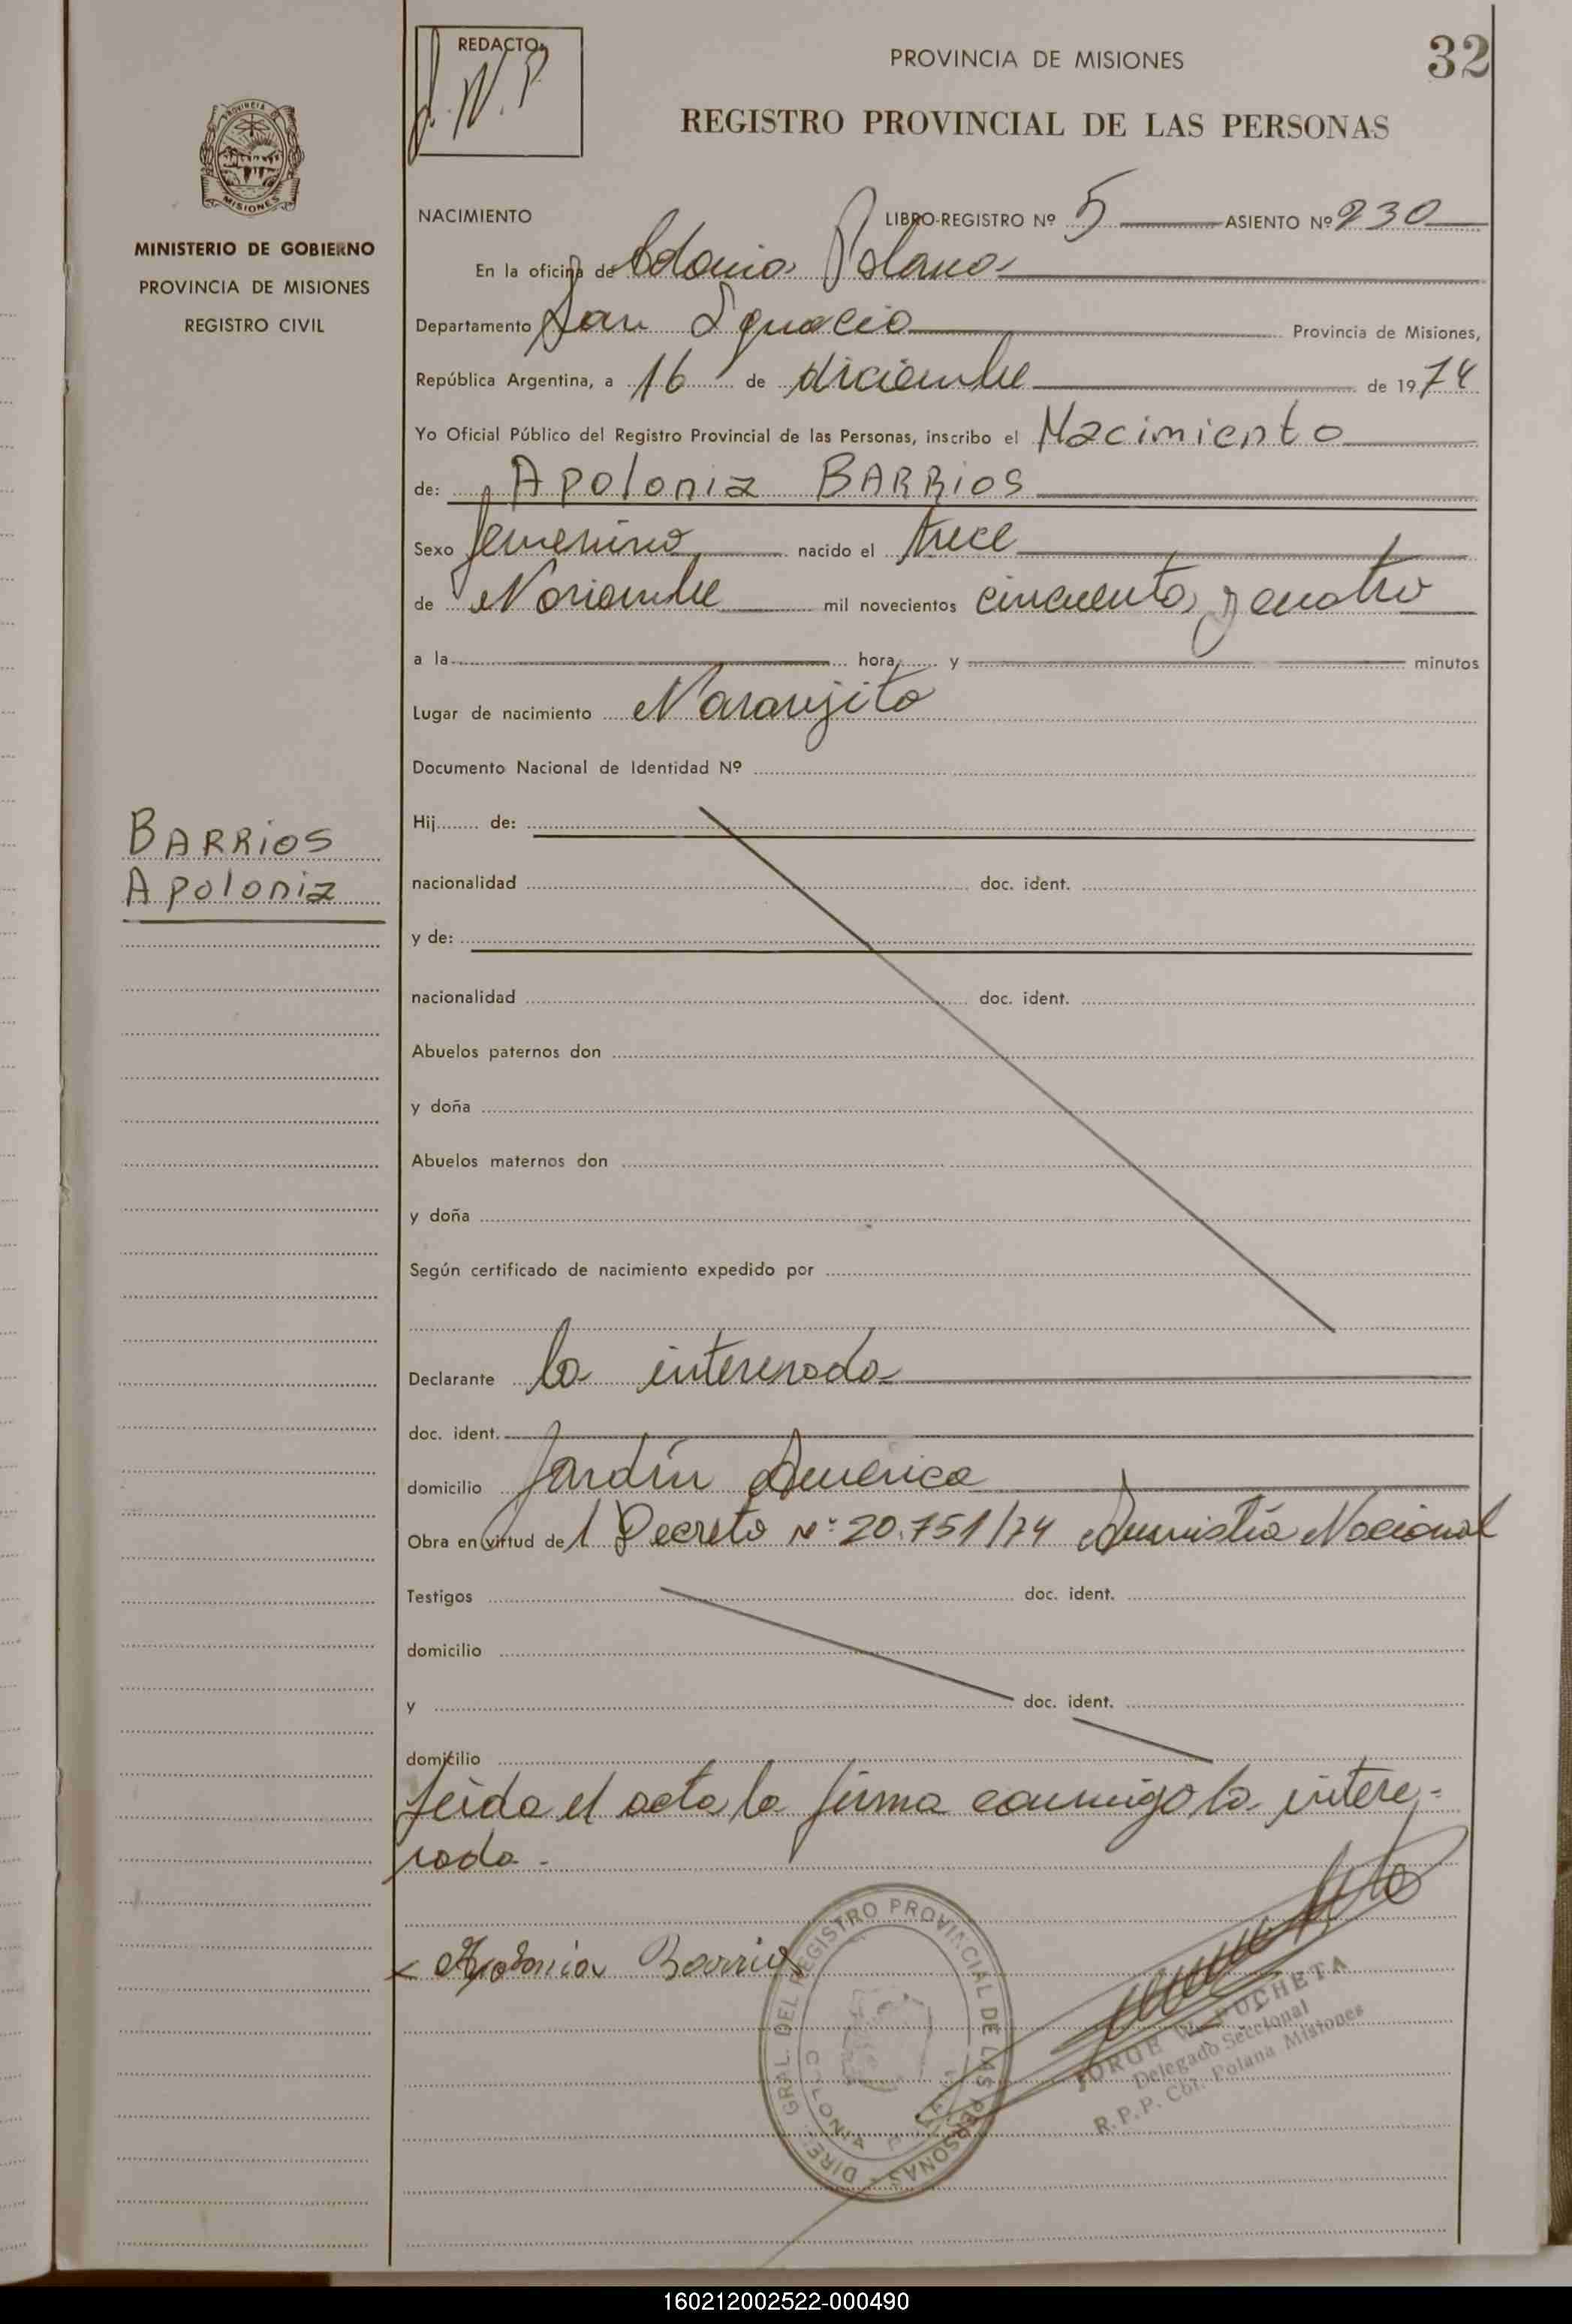 REDACTO.
J.W.P.
PROVINCIA DE MISIONES
32
REGISTRO PROVINCIAL DE LAS PERSONAS
PROVINCIA
MISIONES
MINISTERIO DE GOBIERNO
PROVINCIA DE MISIONES
REGISTRO CIVIL
NACIMIENTO LIBRO-REGISTRO Nº 5 ASIENTO Nº 230
En la oficina de Colonia Polana
Departamento San Ignacio Provincia de Misiones,
República Argentina, a 16 de diciembre de 1974
Yo Oficial Público del Registro Provincial de las Personas, inscribo el Nacimiento
de: Apolonia BARRIOS
Sexo femenino nacido el trece
de Noviembre mil novecientos cincuenta y cuatro
a la hora y minutos
Lugar de nacimiento Naranjito
Documento Nacional de Identidad Nº
Hij de:
BARRIOS
Apolonia
nacionalidad doc. ident.
y de:
nacionalidad doc. ident.
Abuelos paternos don
y doña
Abuelos maternos don
y doña
Según certificado de nacimiento expedido por
Declarante la interesada
doc. ident.
domicilio Jardín América
Obra en virtud del Decreto Nº 20.751/74 Amnistía Nacional
Testigos doc. ident.
domicilio
y doc. ident.
domicilio
Leída el acta la firma conmigo la intere-
sada.
x Apolonia Barrios
DIRE. GRAL. DEL REGISTRO PROVINCIAL DE LAS PERSONAS
COLONIA POLANA
JORGE W. PUCHETA
Delegado Seccional
R.P.P. Col. Polana Misiones
160212002522-000490